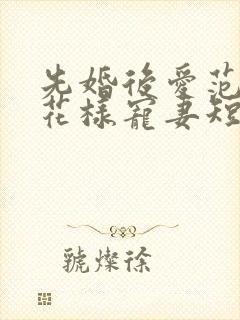 先婚後愛范
花樣寵妻短
號燦徐